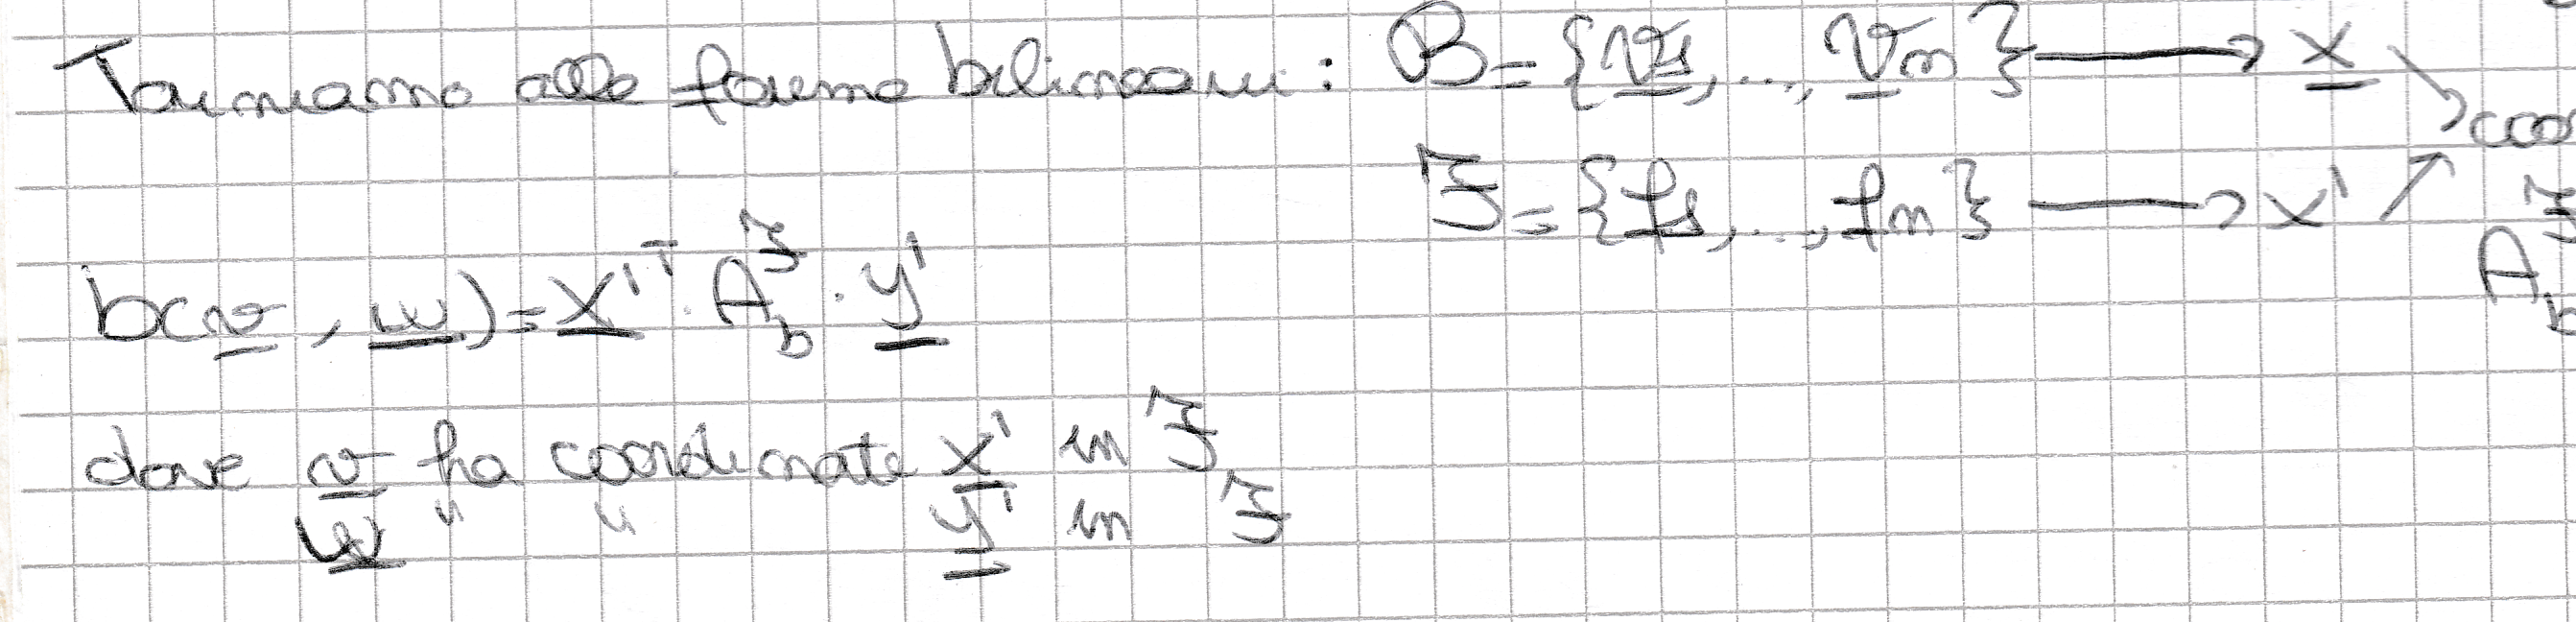 Torniamo alle forme bilineari: B = {v1, ..., vn} → x
F = {f1, ..., fn} → x'
b(v, w) = x'ᵀ · A_b^F · y'
dove v ha coordinate x' in F
w " " y' in F
A_b^F